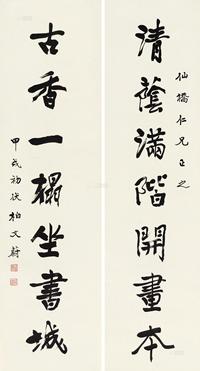 清蔭滿階開畫本
仙橋仁兄正之
古香一榻坐書城
甲戌初伏柏文蔚